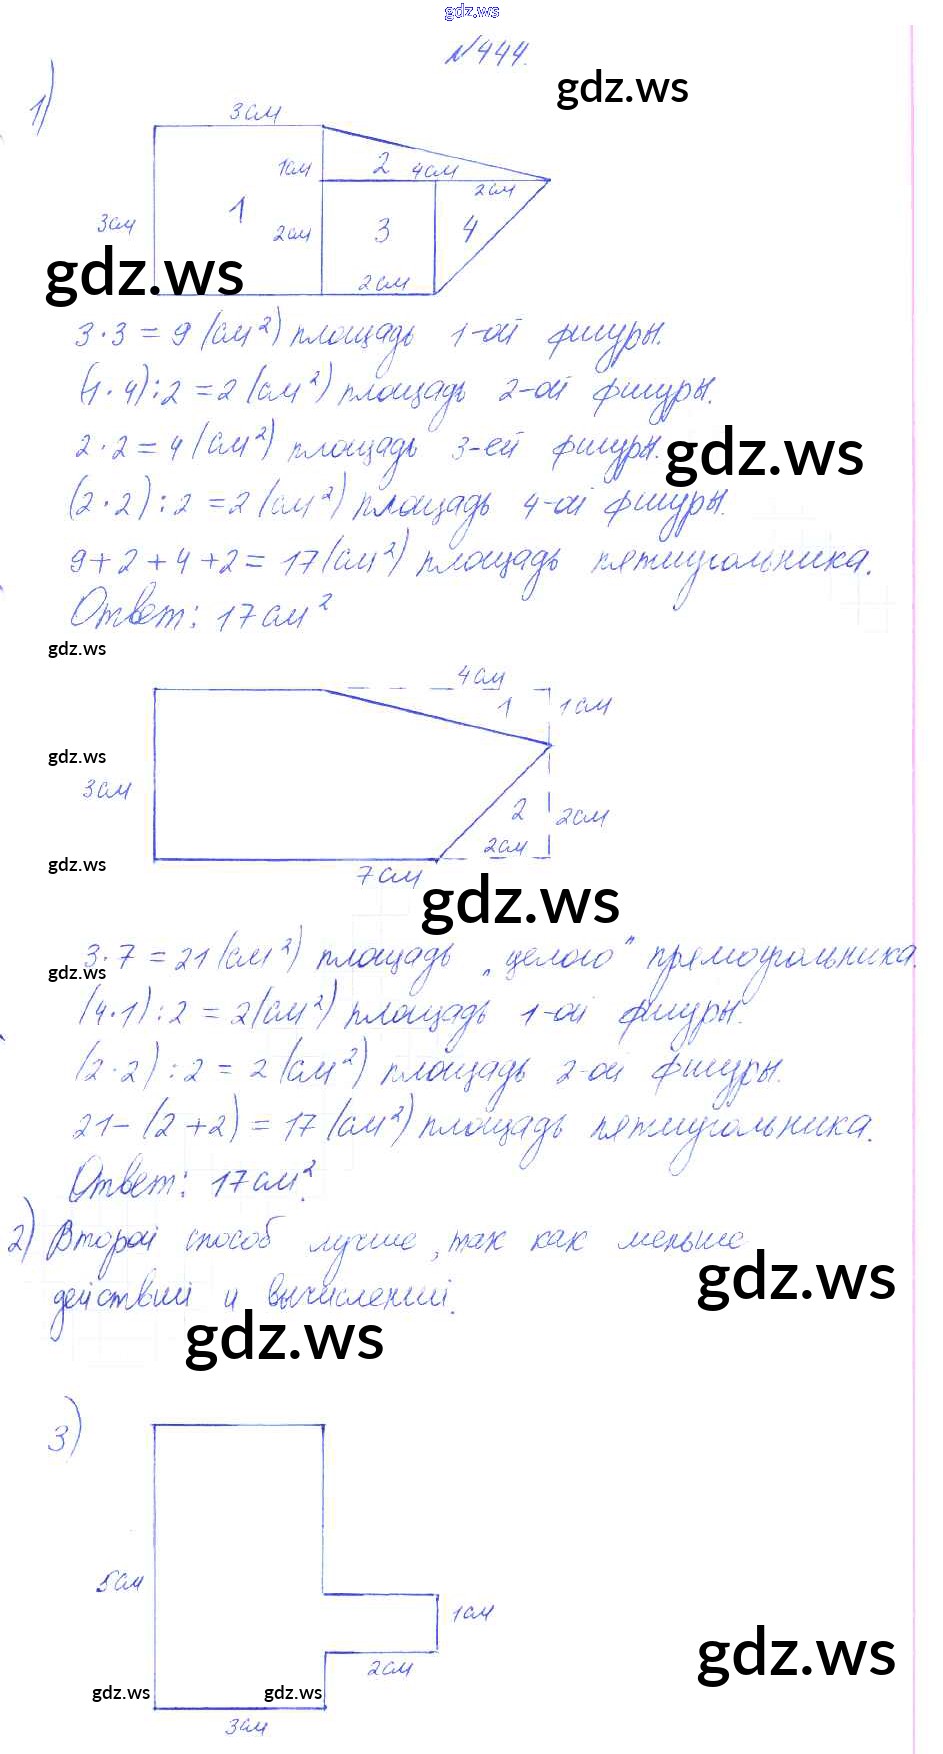 gdz.ws
№444.
gdz.ws
1)
3см
1см 2 4см
2см
3см 1 2см 3 4
gdz.ws
2см
3·3=9(см²) площадь 1-ой фигуры.
(1·4):2=2(см²) площадь 2-ой фигуры.
2·2=4(см²) площадь 3-ей фигуры.
gdz.ws
(2·2):2=2(см²) площадь 4-ой фигуры.
9+2+4+2=17(см²) площадь пятиугольника.
Ответ: 17см²
gdz.ws
4см
1 1см
gdz.ws
3см 2 2см
2см
gdz.ws
7см
gdz.ws
3·7=21(см²) площадь „целого” прямоугольника.
gdz.ws
(4·1):2=2(см²) площадь 1-ой фигуры.
(2·2):2=2(см²) площадь 2-ой фигуры.
21-(2+2)=17(см²) площадь пятиугольника.
Ответ: 17см².
2) Второй способ лучше, так как меньше
gdz.ws
действий и вычислений.
gdz.ws
3)
5см
1см
2см
gdz.ws
gdz.ws gdz.ws
3см